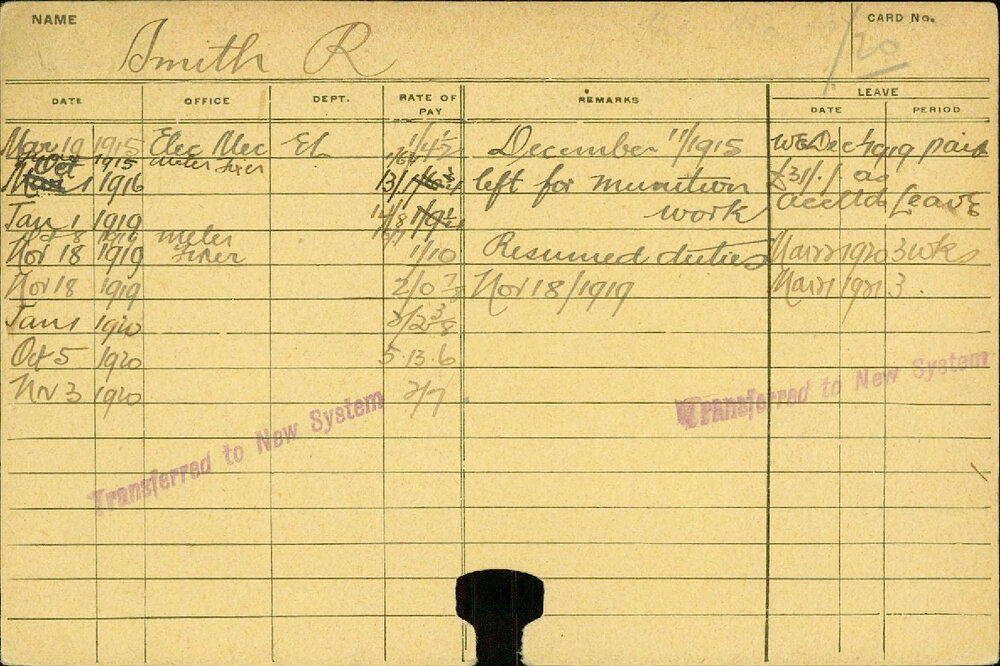 NAME
Smith R
CARD No.
/20
DATE OFFICE DEPT. RATE OF PAY REMARKS LEAVE
DATE PERIOD
Mar 19 1915 Elec Mec EL 1/4½ December 11/1915 WE Dec 1919 paid
1915 meter Fixer
Oct 1 1916 13/1 left for munition £31/./. as
work Leave
Jan 1 1919 14/8
meter
Nov 18 1919 Fixer 1/10 Resumed duties Mar 1920 3 wks
Nov 18 1919 2/0 Nov 18/1919 Mar 1921 3.
Jan 1 1920 2/2⅜
Oct 5 1920 5.13.6
Nov 3 1920 2/7
Transferred to New System
Transferred to New System